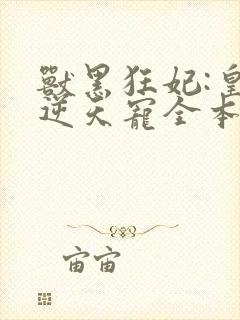 獸黑狂妃:皇
逆天寵全本
宙宙